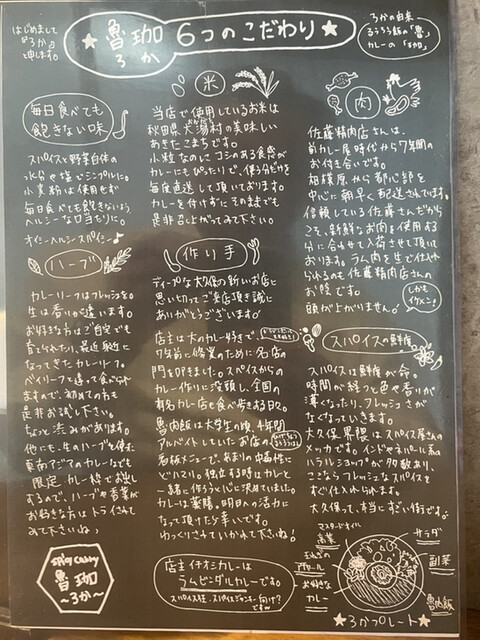 はじめまして
「ろか」
と申します。
魯珈
ろか
6つのこだわり
ろかの由来
るうろう飯の「魯」
カレーの「珈」
毎日食べても
飽きない味
スパイスと野菜自体の
水分や塩でシンプルに。
小麦粉は使用せず
毎日食べても飽きないよう
ヘルシーな口当たりに。
オイシーヘルシースパイシー♪
ハーブ
カレーリーフはフレッシュを。
生は香りが違います。
お好きな方はご自宅でも
育てられたり、最近身近に
なってきたカレーリーフ。
ベイリーフと違って食べられ
ますので、初めての方も
是非お試し下さい。
ちょっと渋みがあります。
他にも、生のハーブを使った
東南アジアのカレーなども
限定カレー枠でお出し
するので、ハーブや香菜が
お好きな方はトライされて
みて下さいね♪
SPICY CURRY
魯珈
〜ろか〜
米
当店で使用しているお米は
秋田県大潟村の美味しい
おおがた
あきたこまちです。
小粒なのにコシのある食感が
カレーにもぴったりで、使う分だけを
毎度直送して頂いております。
カレーを付けずにそのままでも
是非召し上がってみて下さい。
作り手
ディープな大久保の新しいお店に
思い切ってご来店頂き誠に
ありがとうございます！
店主は大のカレー好きで、
7年前に修業のために名店の
門を叩きました。スパイスから
カレー作りに没頭し、全国の
有名カレー店を食べ歩きする日々。
魯肉飯は大学生の頃、4年間
アルバイトしていたお店の
看板メニューで、あまりの中毒性に
どハマり。独立する時はカレーと
一緒に作ろうと心に決めていました。
カレーは薬膳。明日への活力に
なって頂けたら幸いです。
ゆっくりされていかれて下さいね！
店主イチオシカレーは
ラムビンダルカレーです。
スパイス狂、スパイスジャンキー向け？
です〜
肉
佐藤精肉店さんは、
前カレー屋時代から7年間の
お付き合いです。
相模原から都心部を
中心に朝早く配送されてます。
信頼している佐藤さんだから
こそ、新鮮なお肉を使用する
分に合わせて入荷させて頂いて
おります。ラム肉を生で仕入れ
られるのも佐藤精肉店さんの
お陰です。
頭が上がりません！
しかも
イケメン！
スパイスの鮮度
スパイスは鮮度が命。
時間が経つと色や香りが
薄くなったり、フレッシュさが
なくなっていきます。
大久保界隈はスパイス屋さんの
メッカです。インドやネパール系の
ハラルショップが多数あり、
ここならフレッシュなスパイスを
すぐ仕入れられます。
大久保って、本当にすごい街です。
マスタードオイル
高菜
サラダ
アチャール
副菜
お好きな
カレー
魯肉飯
★ろかプレート★